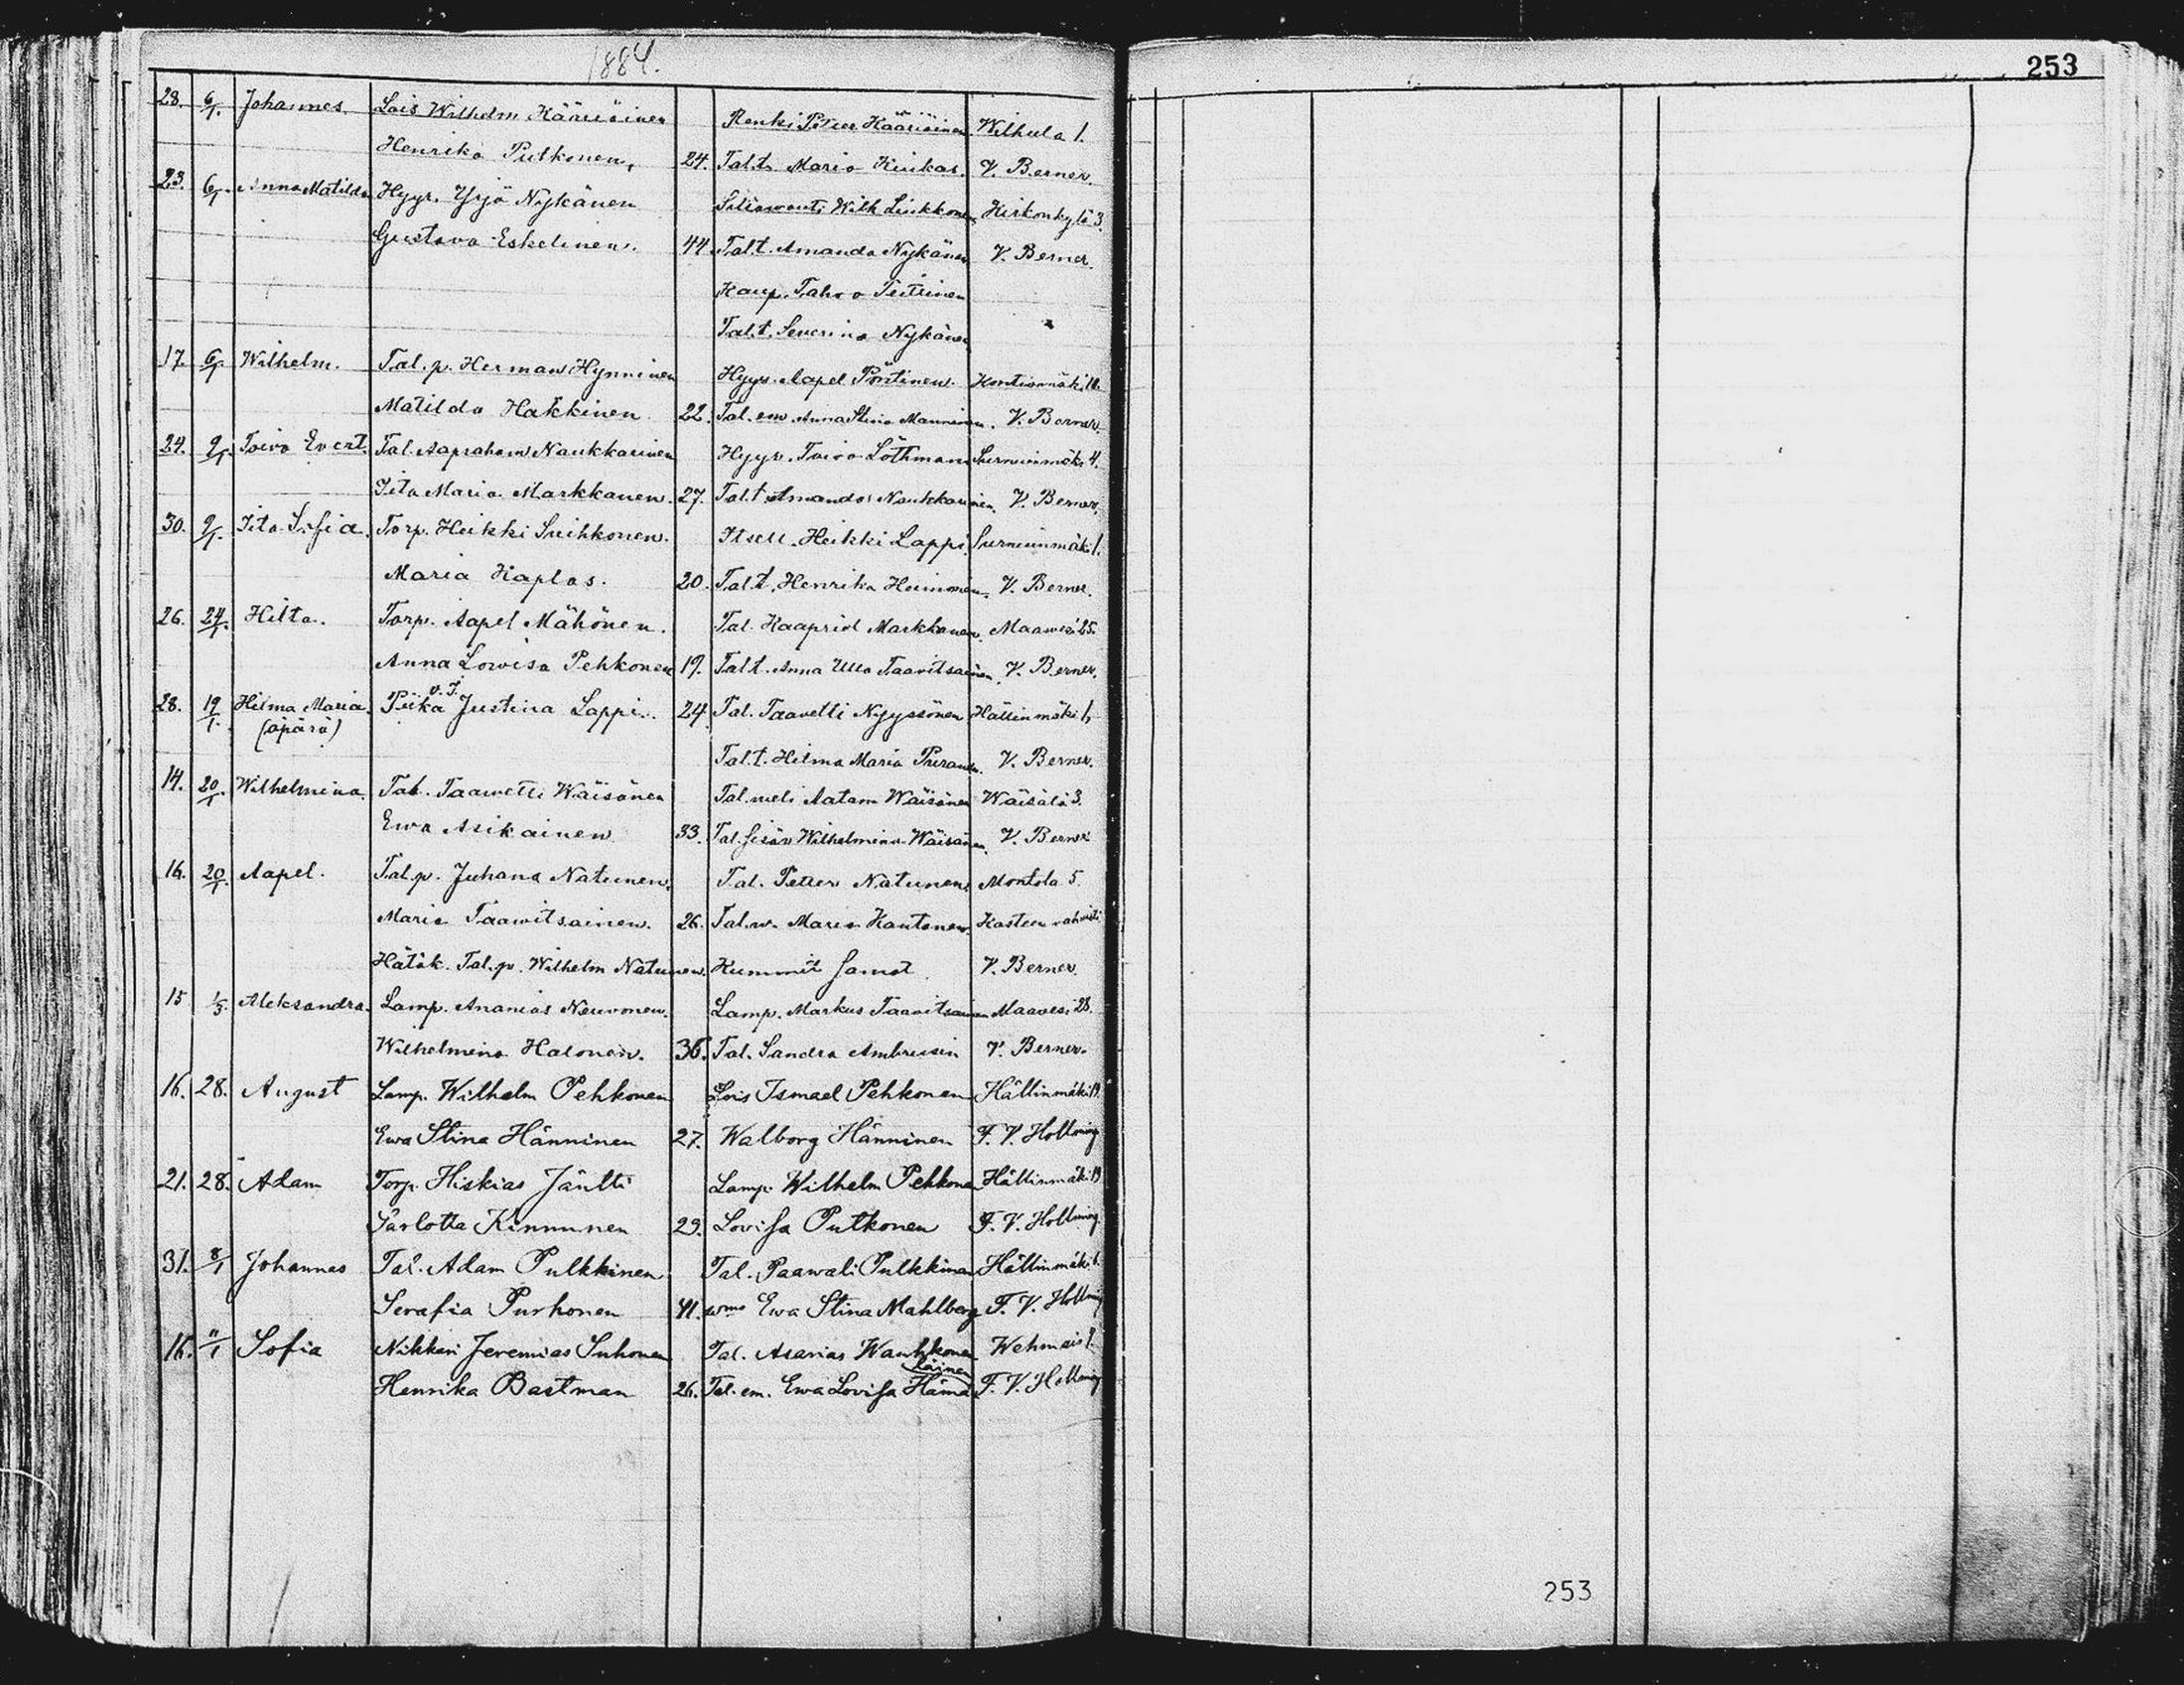 1884.
253
28. 6/1. Johannes. Lois Wilhelm Kääriäinen Renki Petter Kääriäinen Wilhula 1.
Henrika Putkonen, 24. Tal.t. Maria Kiukas. V. Berner.
23. 6/1. Anna Matilda Hyyr. Yrjö Nykänen Siliawouti Wilh Liukkonen Kirkonkylä 3.
Gustava Eskelinen. 44. Tal.t. Amanda Nykänen V. Berner.
Kaup. Tahvo Teittinen
Tal.t. Severina Nykänen
17. 6/1 Wilhelm. Tal. p. Herman Hynninen Hyyr. Aapel Pöntinen. Kontionmäki 10.
Matilda Hakkinen 22. Tal. em. Anna Stina Manninen. V. Berner.
24. 9/1. Toivo Evert. Tal. Aapraham Naukkarinen Hyyr. Toivo Löthman Surnuinmäki 4.
Iita Maria Markkanen. 27. Tal.t Amanda Naukkarinen. V. Berner.
30. 9/1. Iita Sofia. Torp. Heikki Suihkonen. Itsell. Heikki Lappi Surnuinmäki 1.
Maria Kaplas. 20. Tal.t. Henrika Heimonen. V. Berner.
26. 24/1. Hilta. Torp. Aapel Mähönen. Tal. Kaaprid Markkanen. Maawesi 25.
Anna Lowisa Pehkonen 19. Tal.t. Anna Ulla Taavitsainen. V. Berner.
28. 19/1. Hilma Maria. Piika v. I. Justina Lappi. 24 Tal. Taavetti Nyyssönen Hällinmäki 1,
(äpärä)
Tal.t. Hilma Maria Puranen. V. Berner.
14. 20/1. Wilhelmina. Tal. Taawetti Wäisänen Tal. veli Aatam Wäisänen Wäisälä 3.
Ewa Asikainen 33. Tal. sisär Wilhelmina Wäisänen. V. Berner
16. 20/1. Aapel. Tal.p. Juhana Natunen. Tal. Petter Natunen Montola 5.
Maria Taawitsainen. 26. Tal.w. Maria Kautonen. Kasteen vahvisti
Hätäk. Tal.p. Wilhelm Natunen. Kummit samat V. Berner.
15 1/3. Aleksandra. Lamp. Ananias Neuvonen. Lamp. Markus Taavitsainen Maavesi 28.
Wilhelmina Halonen. 36. Tal. Sandra Ambrusin V. Berner.
16. 28. August Lamp. Wilhelm Pehkonen Lois Ismael Pehkonen Hällinmäki 19.
Ewa Stina Hänninen 27. Walborg Hänninen F. V. Hollming
21. 28. Adam Torp. Hiskias Jäntti Lamp. Wilhelm Pehkonen Hällinmäki 19
Sarlotta Kinnunen 29. Lovisa Putkonen F. V. Hollming
31. 8/1 Johannes Tal. Adam Pulkkinen Tal. Paawali Pulkkinen Hällinmäki 6.
Serafia Purhonen 41. wmo Ewa Stina Mahlberg F. V. Hollming
16. 11/1 Sofia Nikkari Jeremias Suhonen Tal. Asarias Wauhkonen Wehmais 1.
Henrika Bastman 26. Tal. em. Ewa Lovisa Hämäläinen F. V. Hollming
253